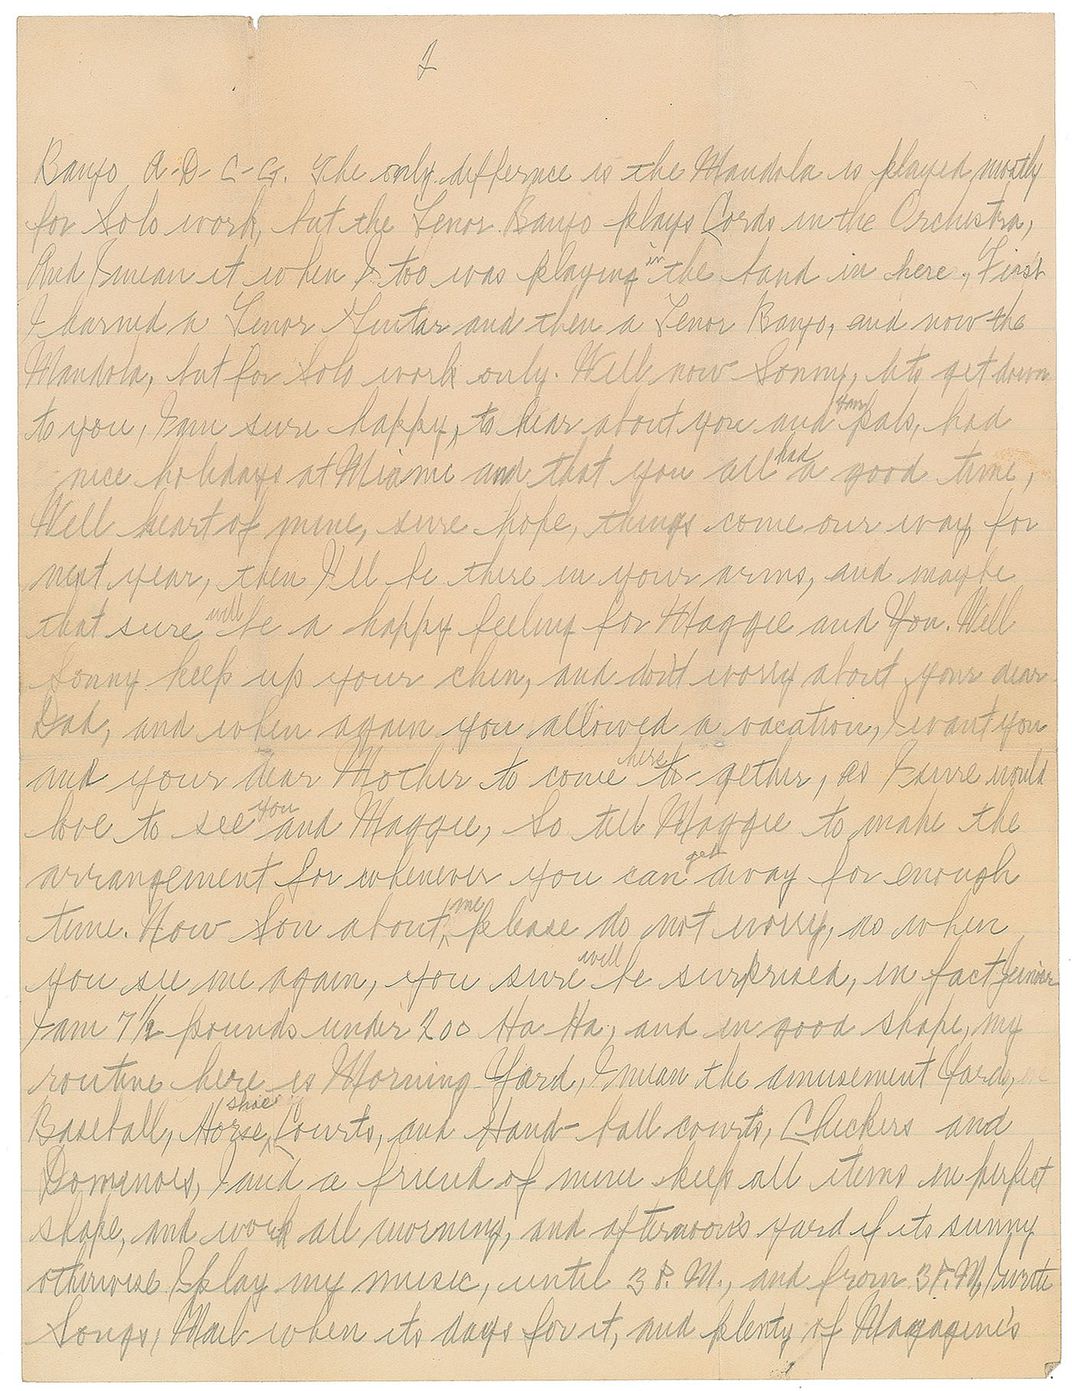 2
Banjo A-D-C-G. The only differnce is the Mandola is played mostly
for Solo work, but the Tenor Banjo plays Cords in the Orchestra,
And I mean it when I too was playing in the band in here, First
I larned a Tenor Guitar and then a Tenor Banjo, and now the
Mandola, but for Solo work only. Well now Sonny, lets get down
to you, I am sure happy, to hear about you and your pals, had
nice holidays at Miami and that you all had a good time,
Well heart of mine, sure hope, things come our way for
next year, then I'll be there in your arms, and maybe
that sure will be a happy feeling for Maggie and You. Well
Sonny keep up your chin, and don't worry about your dear
Dad, and when again you allowed a vacation, I want you
and your dear Mother to come here to-gether, as I sure would
love to see you and Maggie, So tell Maggie to make the
arrangement for whenever you can get away for enough
time. Now Son about me, please do not worry, as when
you see me again, you sure will be surprised, in fact Junior
I am 7½ pounds under 200 Ha Ha, and in good shape, my
routine here is Morning Yard, I mean the amusement Yards,
Baseball, Horse shoe Courts, and Hand-ball courts, Checkers and
Dominoes, I and a friend of mine keep all items in perfect
shape, and work all morning, and afternoon's yard if its sunny
otherwise I play my music, until 3 P.M., and from 3 P.M, I write
Songs, Mail when its days for it, and plenty of Magagine's